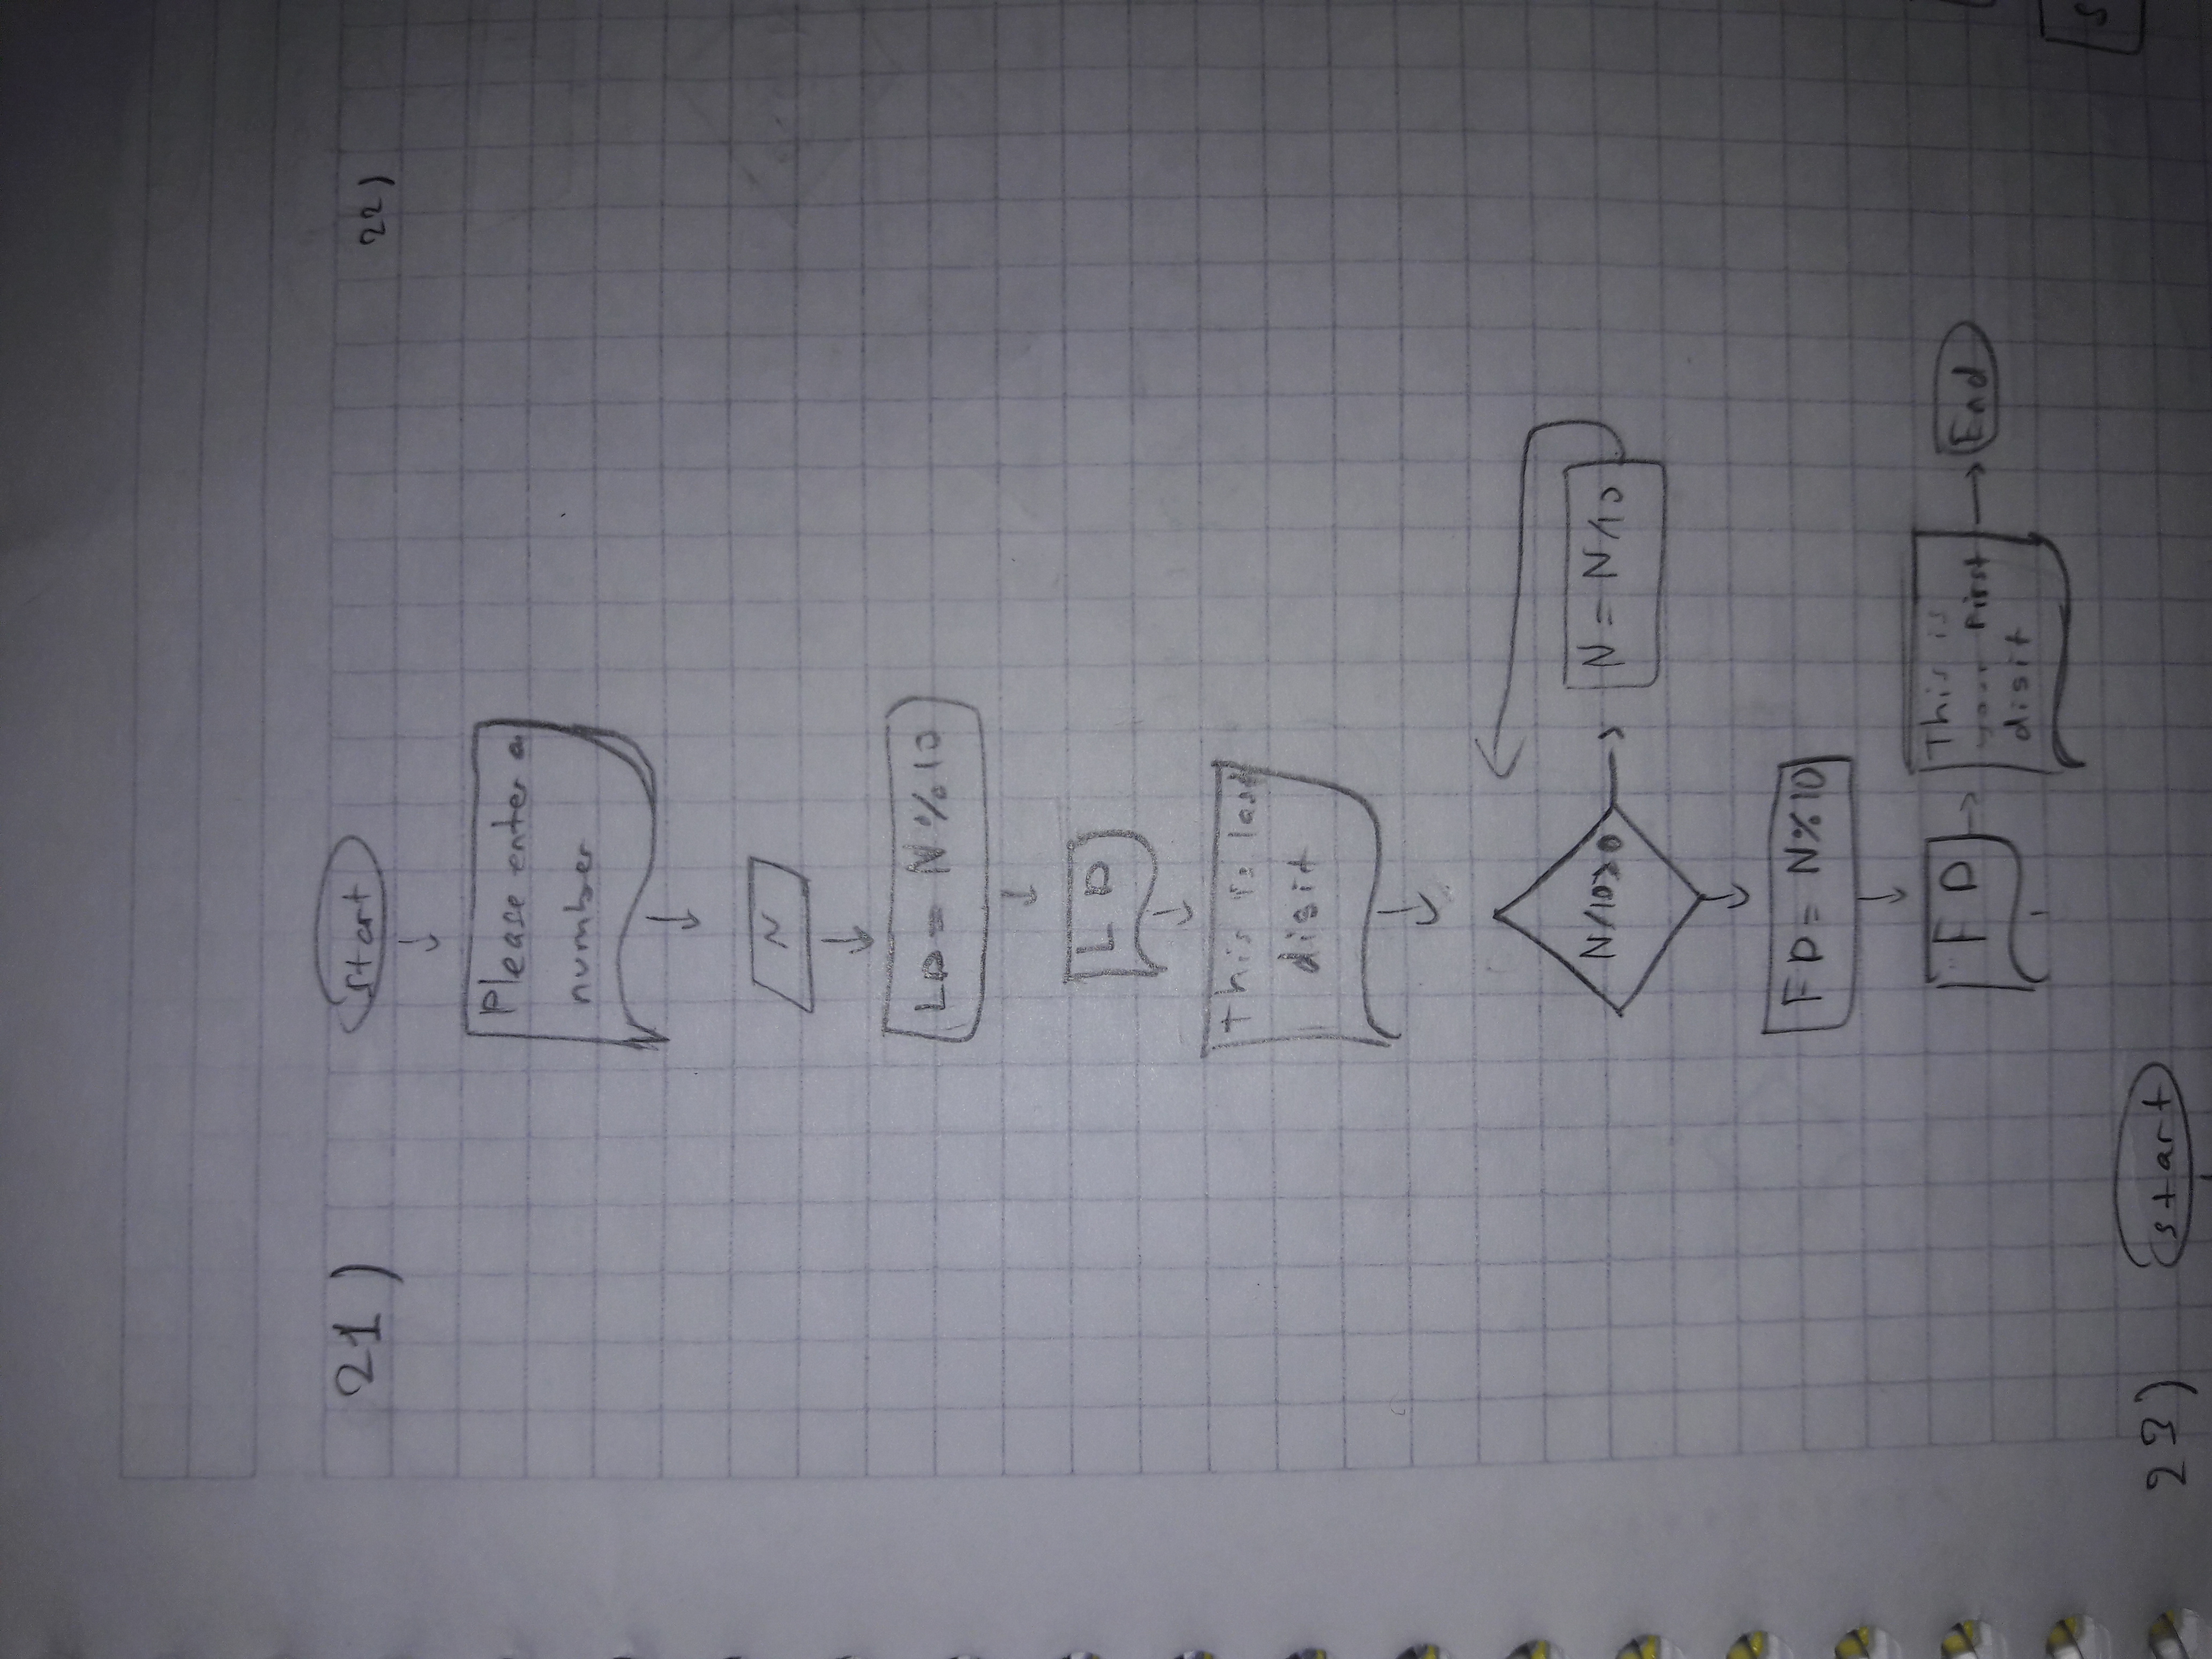 21)
start
22)
Please enter a
number
N
LD = N % 10
LD
this is last
disit
N/10>0
N = N/10
FD = N%10
FD
This is
your First
disit
End
23)
start
S